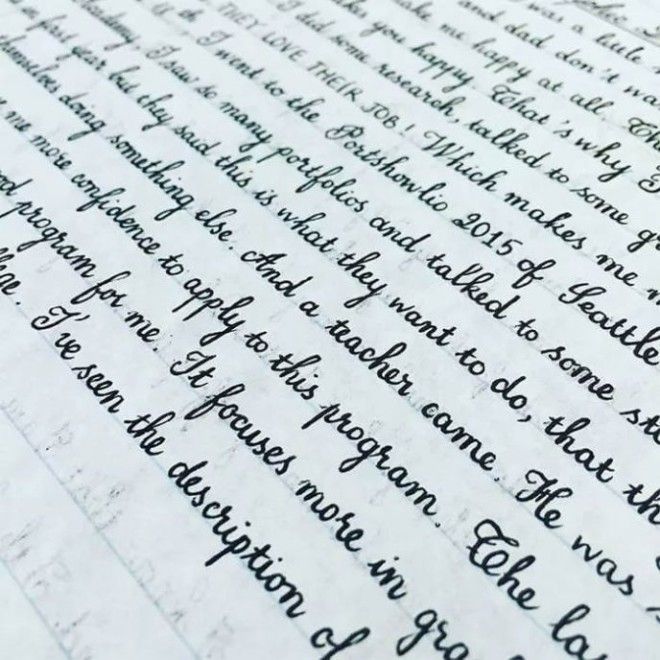 was a little
and dad don't wa
me happy at all. Th
you happy. That's why I
I did some research, talked to some g
THEY LOVE THEIR JOB! Which makes me m
I went to the Portshowlio 2015 of Seattle
I saw so many portfolios and talked to some st
in first year but they said this is what they want to do, that th
themselves doing something else. And a teacher came. He was s
me more confidence to apply to this program. The la
program for me. It focuses more in gra
I've seen the description of